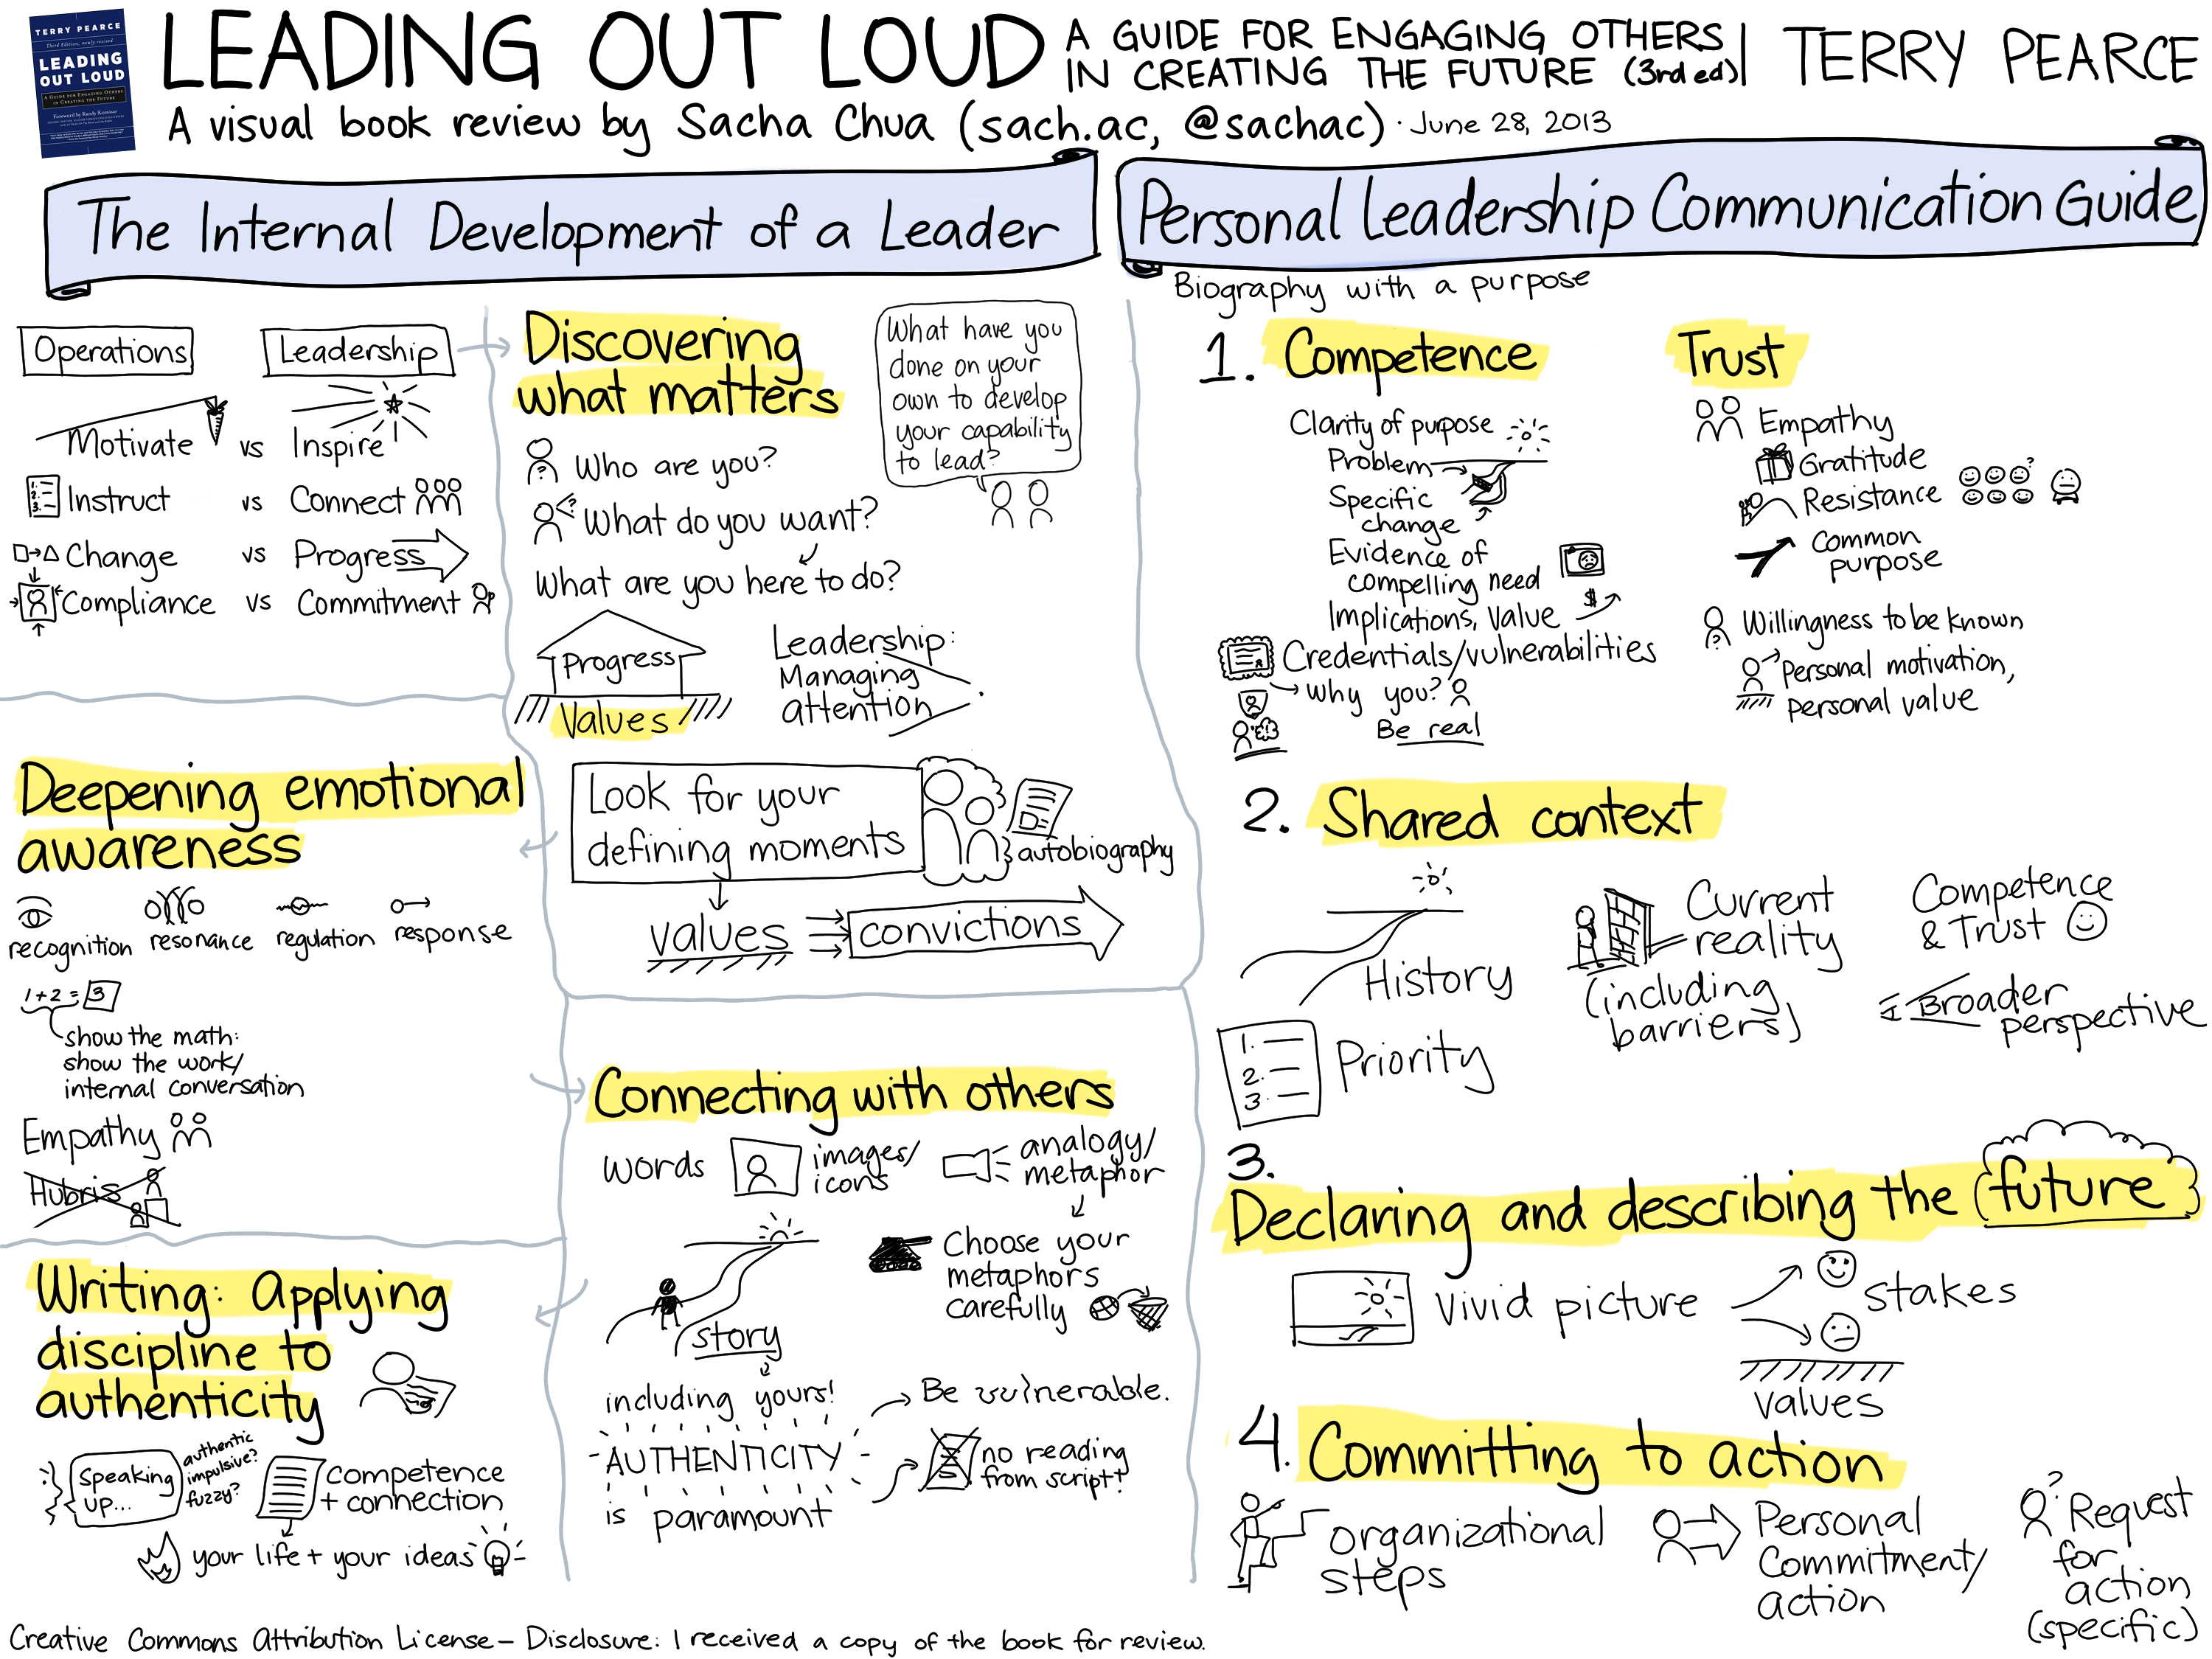 TERRY PEARCE
Third Edition, newly revised
LEADING
OUT LOUD
A GUIDE FOR ENGAGING OTHERS
IN CREATING THE FUTURE
Foreword by Randy Komisar
LEADING OUT LOUD
A GUIDE FOR ENGAGING OTHERS
IN CREATING THE FUTURE (3rd ed)
| TERRY PEARCE
A visual book review by Sacha Chua (sach.ac, @sachac) · June 28, 2013
The Internal Development of a Leader
Operations
Leadership
Motivate vs Inspire
1.
2.
3.
Instruct vs Connect
Change vs Progress
Compliance vs Commitment
Discovering
what matters
What have you
done on your
own to develop
your capability
to lead?
? Who are you?
? What do you want?
What are you here to do?
Progress
Values
Leadership:
Managing
attention
Look for your
defining moments
autobiography
values
convictions
Deepening emotional
awareness
recognition resonance regulation response
1+2=3
show the math:
show the work/
internal conversation
Empathy
Hubris
Connecting with others
words
images/
icons
analogy/
metaphor
Choose your
metaphors
carefully
story
including yours!
AUTHENTICITY
is paramount
Be vulnerable.
no reading
from script!
Writing: Applying
discipline to
authenticity
Speaking
up...
authentic
impulsive?
fuzzy?
competence
+ connection
your life + your ideas
Personal Leadership Communication Guide
Biography with a purpose
1. Competence
Clarity of purpose
Problem
Specific
change
Evidence of
compelling need
Implications, Value $
Credentials/vulnerabilities
Why you?
Be real
Trust
Empathy
Gratitude
Resistance ?
Common
purpose
? Willingness to be known
Personal motivation,
personal value
2. Shared context
History
Current
reality
(including
barriers)
Competence
& Trust
1.
2.
3.
Priority
Broader
perspective
3.
Declaring and describing the future
Vivid picture
Stakes
values
4. Committing to action
organizational
steps
Personal
Commitment/
action
? Request
for
action
(specific)
Creative Commons Attribution License - Disclosure: I received a copy of the book for review.